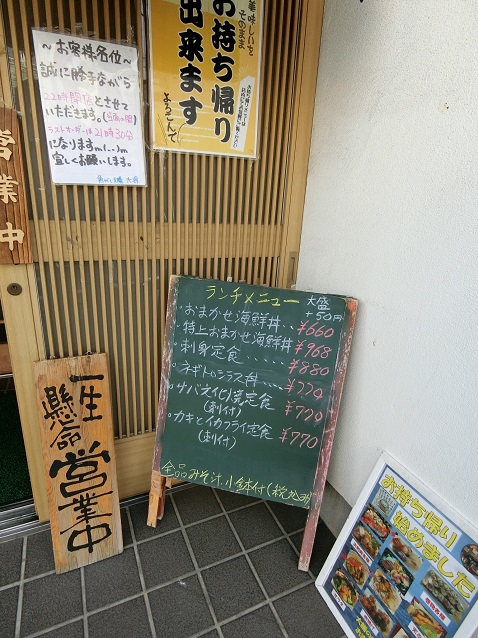 ～お客様各位～
誠に勝手ながら
22時閉店とさせて
いただきます。(当面の間)
ラストオーダーは21時30分
になりますm(_ _)m
宜しくお願いします。
美味しいを
そのまま
お持ち帰り
出来ます
よろこんで
営業中
ランチメニュー
大盛
+50円
・おまかせ海鮮丼‥¥660
・特上おまかせ海鮮丼 ¥968
・刺身定食‥‥‥¥880
・ネギトロシラス丼‥‥¥770
・サバ文化焼定食 ¥720
(刺付)
・カキとイカフライ定食 ¥770
(刺付)
全品みそ汁、小鉢付(税込み)
一生
懸命
営業中
お持ち帰り
始めました